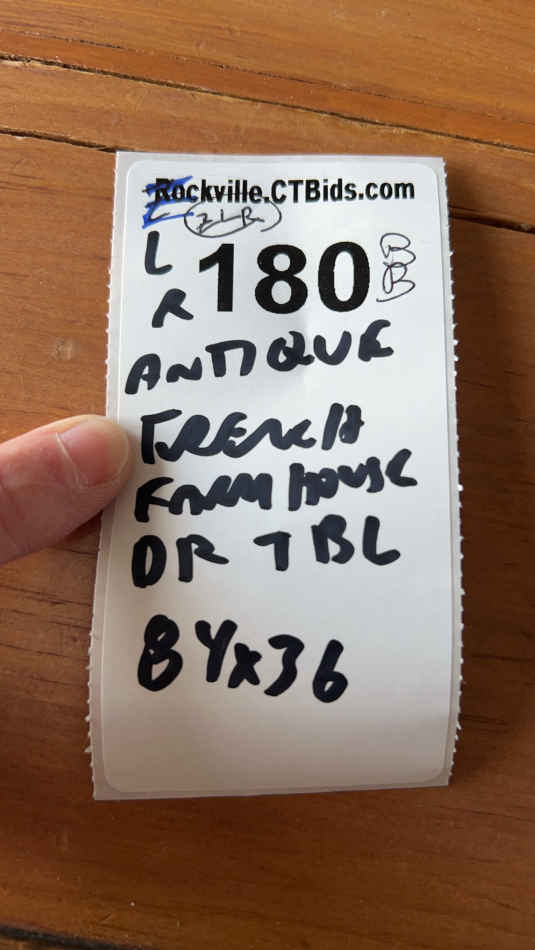 Rockville.CTBids.com
L
R
180
ANTIQUE
FRENCH
FARMHOUSE
DR TBL
84x36